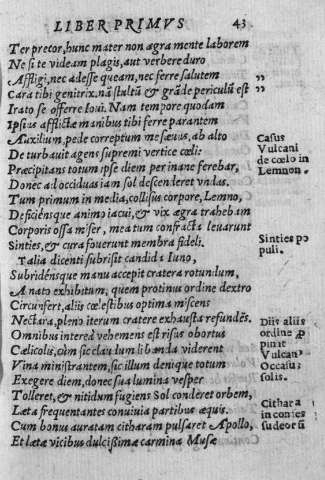 LIBER PRIMVS 43
Ter precor, hunc mater non ægra mente laborem
Ne si te videam plagis, aut verbere duro
Affligi, nec adesse queam, nec ferre salutem ,,
Cara tibi genitrix. nã stultũ & grãde periculũ est ,,
Irato se offerre Ioui. Nam tempore quodam
Ipsius afflictæ manibus tibi ferre parantem
Auxilium, pede correptum me sæuus, ab alto
De turbauit agens supremi vertice cœli:
Casus
Vulcani
de cœlo in
Lemnon.
Præcipitans totum ipse diem per inane ferebar,
Donec ad occiduas iam sol descenderet vndas.
Tum primum in media, collisus corpore, Lemno,
Deficiénsque animo iacui, & vix ægra trahebam
Corporis ossa miser, mea tum confracta leuarunt
Sinties, & cura fouerunt membra fideli.
Sinties po
puli.
Talia dicenti subrisit candida Iuno,
Subridénsque manu accepit cratera rotundum,
A nato exhibitum, quem protinus ordine dextro
Circunfert, aliis cœlestibus optima miscens
Nectara, pleno iterum cratere exhausta refundẽs.
Omnibus interea vehemens est risus obortus
Cælicolis, cùm sic claudum libanda viderent
Vina ministrantem, sic illum denique totum
Exegere diem, donec sua lumina vesper
Diis aliis
ordine ꝓ
pinit
Vulcan'
Occasus
solis.
Tolleret, & nitidum fugiens Sol conderet orbem,
Læta frequentantes conuiuia partibus æquis.
Cum bonus auratam citharam pulsaret Apollo,
Et læta vicibus dulcißima carmina Musæ
Cithara
in conuiuiis